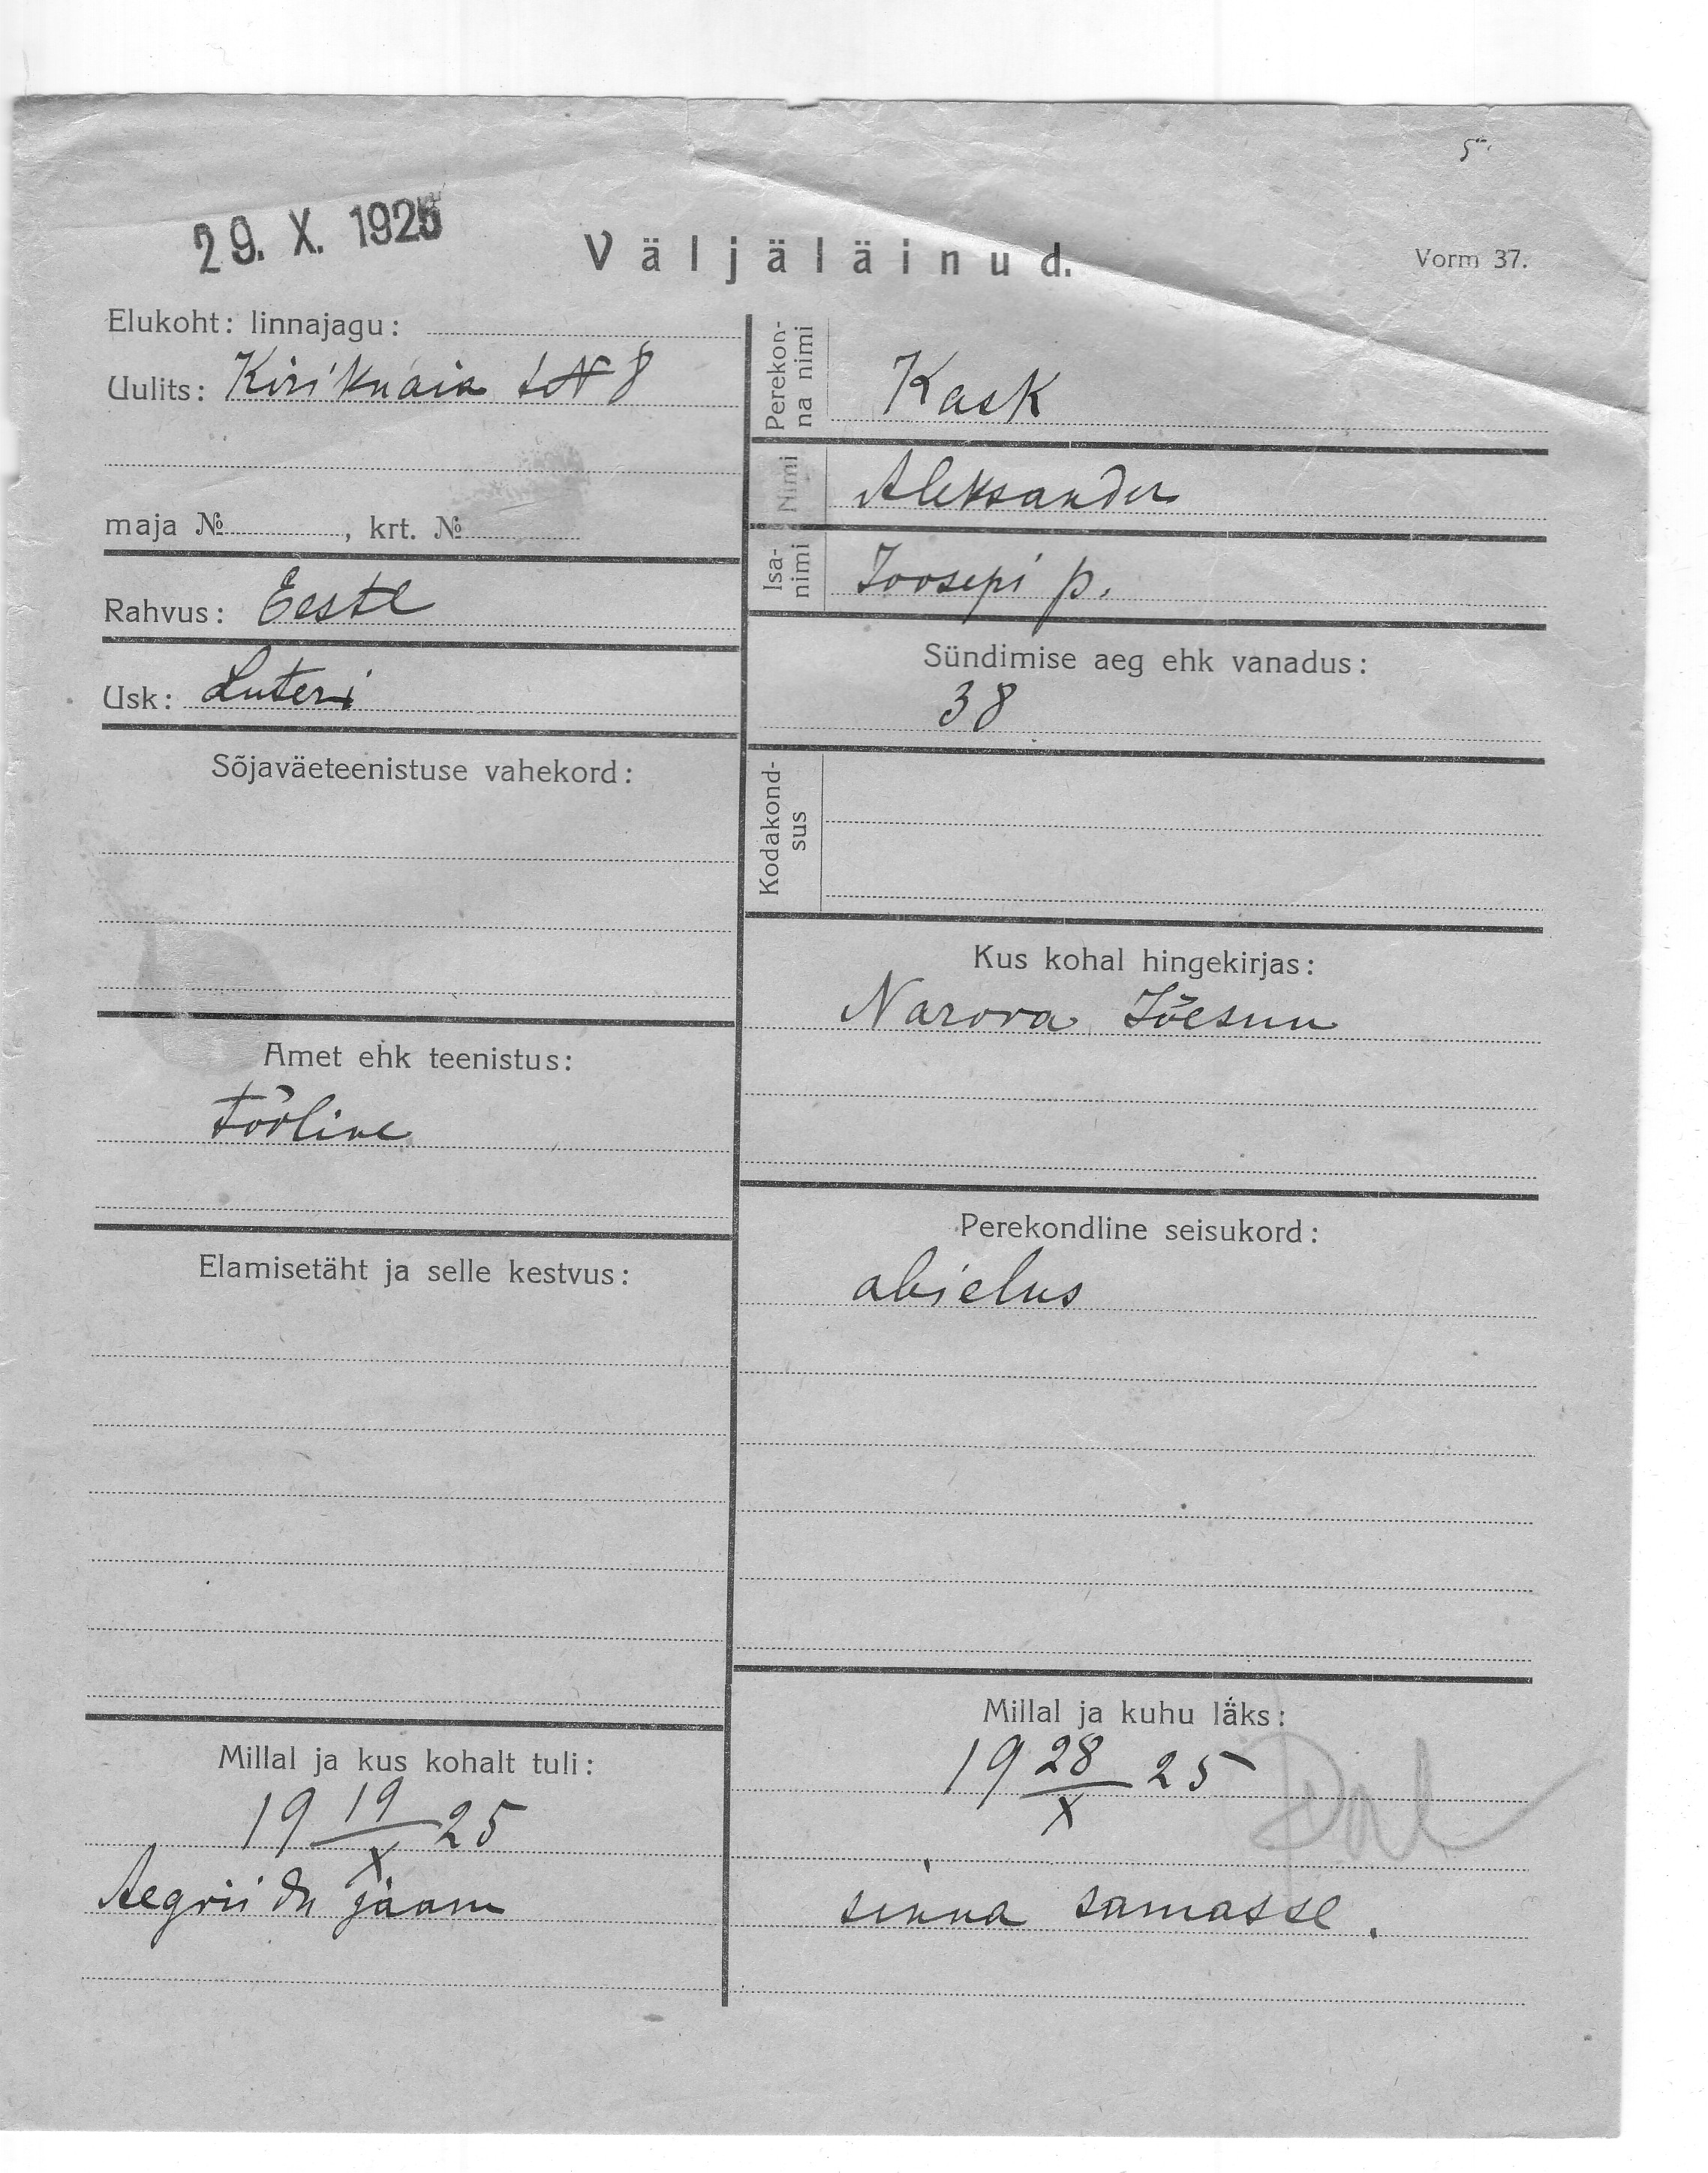 29. X. 1925
Väljäläinud.
Vorm 37.
Elukoht: linnajagu:
Uulits: Kirikuaia t N 8
maja №, krt. №
Rahvus: Eesti
Usk: Luteri
Sõjaväeteenistuse vahekord:
Amet ehk teenistus:
tööline
Elamisetäht ja selle kestvus:
Millal ja kus kohalt tuli:
19 19/X 25
jaam
Perekonna nimi
Kask
Nimi
Aleksander
Isanimi
Joosepi p.
Sündimise aeg ehk vanadus:
38
Kodakondsus
Kus kohal hingekirjas:
Narova Jõesuu
Perekondline seisukord:
abielus
Millal ja kuhu läks:
19 28/X 25
sinna samasse.